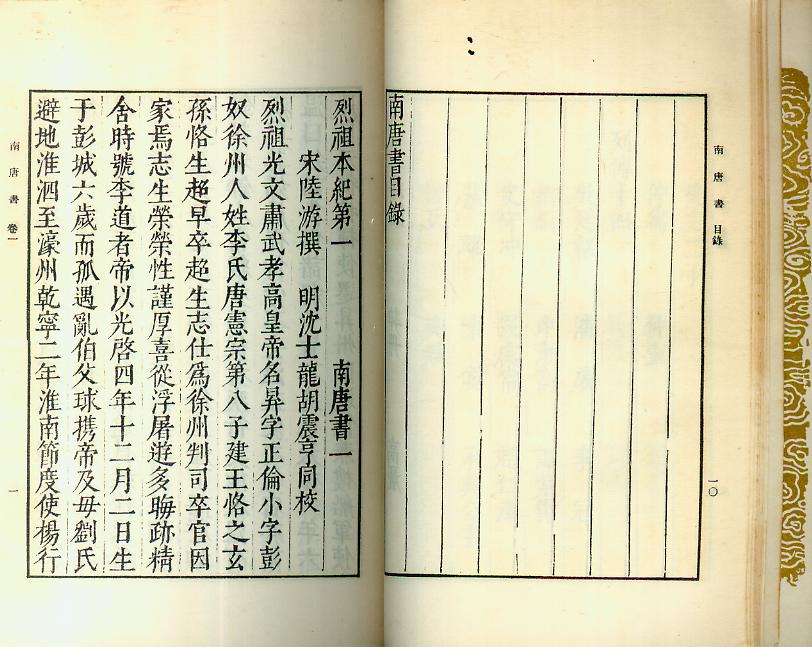 南唐書 目錄
一〇
南唐書目錄
烈祖本紀第一 南唐書一
宋陸游撰 明沈士龍胡震亨同校
烈祖光文肅武孝高皇帝名昪字正倫小字彭
奴徐州人姓李氏唐憲宗第八子建王恪之玄
孫恪生超早卒超生志仕爲徐州判司卒官因
家焉志生榮榮性謹厚喜從浮屠遊多晦跡精
舍時號李道者帝以光啓四年十二月二日生
于彭城六歲而孤遇亂伯父球携帝及母劉氏
避地淮泗至濠州乾寧二年淮南節度使楊行
南唐書 卷一
一